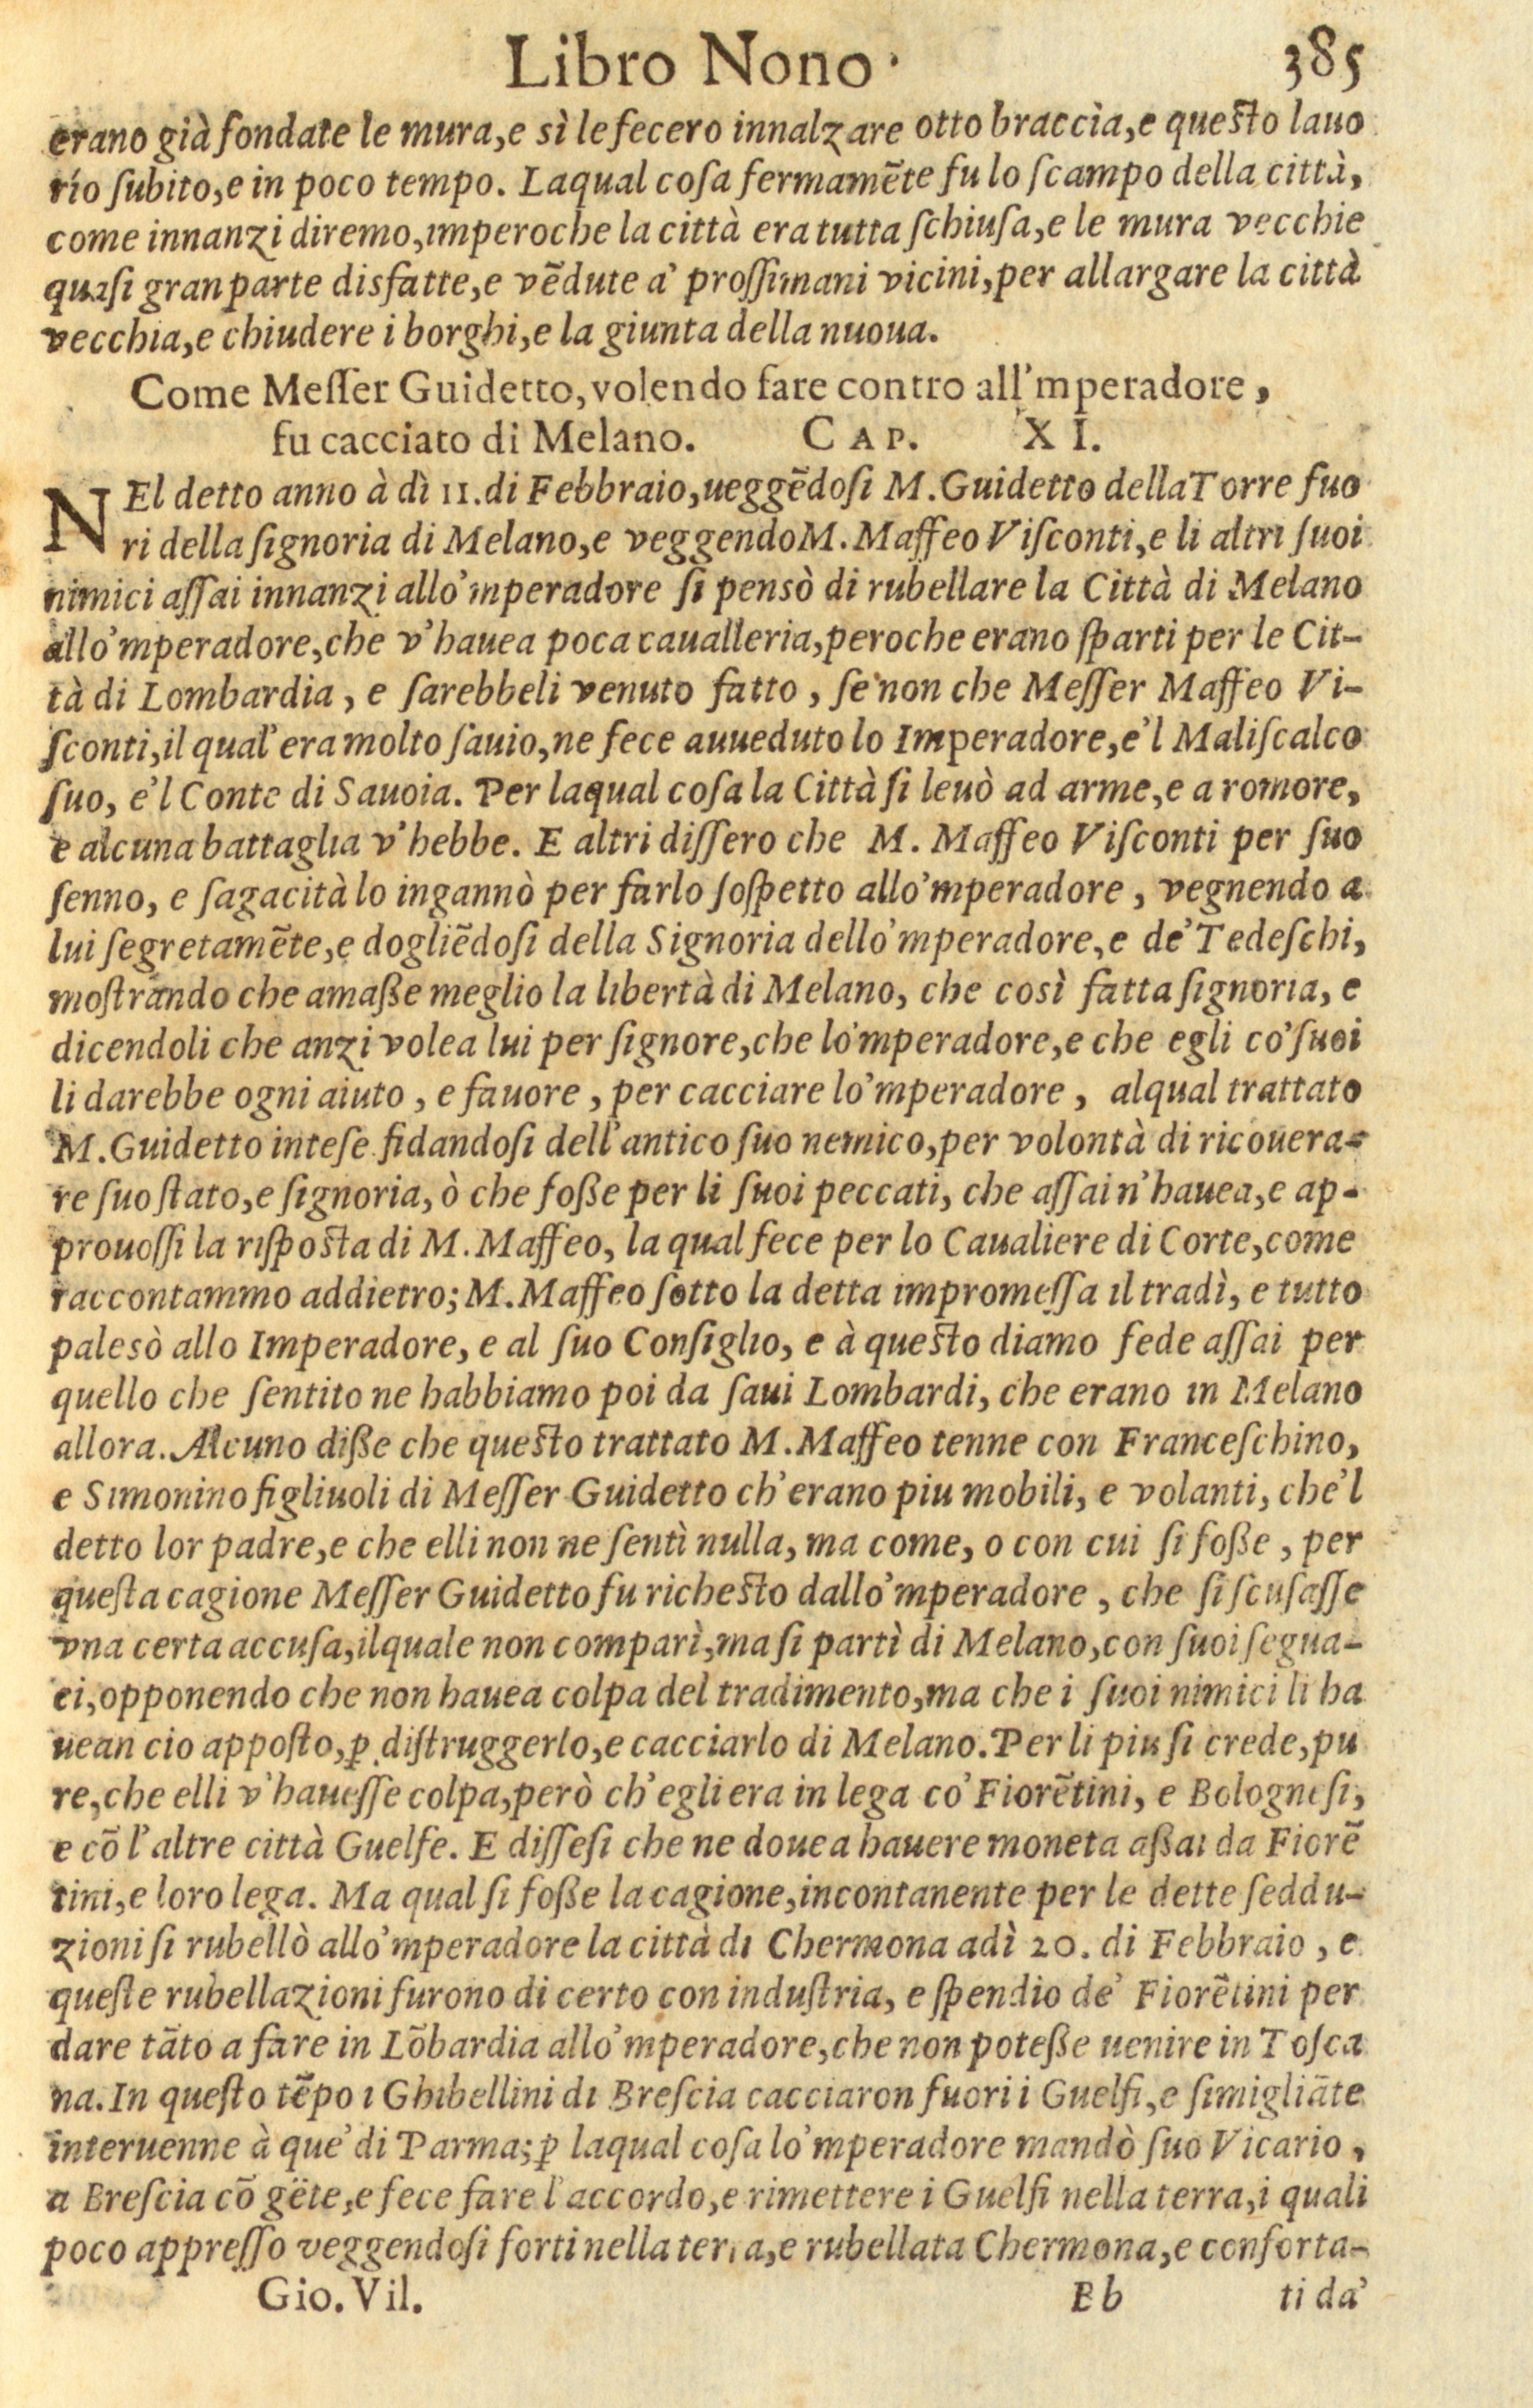 Libro Nono. 385
erano già fondate le mura, e sì le fecero innalzare otto braccia, e questo lauo
rio subito, e in poco tempo. Laqual cosa fermamẽte fu lo scampo della città,
come innanzi diremo, imperoche la città era tutta schiusa, e le mura vecchie
quasi gran parte disfatte, e vẽdute a' prossimani vicini, per allargare la città
vecchia, e chiudere i borghi, e la giunta della nuoua.
Come Messer Guidetto, volendo fare contro all'mperadore,
fu cacciato di Melano. CAP. XI.
NEl detto anno à dì 11. di Febbraio, ueggẽdosi M. Guidetto della Torre fuo
ri della signoria di Melano, e veggendo M. Maffeo Visconti, e li altri suoi
nimici assai innanzi allo'mperadore si pensò di rubellare la Città di Melano
allo'mperadore, che v'hauea poca caualleria, peroche erano sparti per le Cit-
tà di Lombardia, e sarebbeli venuto fatto, se non che Messer Maffeo Vi-
sconti, il qual'era molto sauio, ne fece auueduto lo Imperadore, e'l Maliscalco
suo, e'l Conte di Sauoia. Per laqual cosa la Città si leuò ad arme, e a romore,
e alcuna battaglia v'hebbe. E altri dissero che M. Maffeo Visconti per suo
senno, e sagacità lo ingannò per farlo sospetto allo'mperadore, vegnendo a
lui segretamẽte, e dogliẽdosi della Signoria dello'mperadore, e de' Tedeschi,
mostrando che amasse meglio la libertà di Melano, che così fatta signoria, e
dicendoli che anzi volea lui per signore, che lo'mperadore, e che egli co' suoi
li darebbe ogni aiuto, e fauore, per cacciare lo'mperadore, alqual trattato
M. Guidetto intese fidandosi dell'antico suo nemico, per volontà di ricouera-
re suo stato, e signoria, ò che fosse per li suoi peccati, che assai n'hauea, e ap-
prouossi la risposta di M. Maffeo, la qual fece per lo Caualiere di Corte, come
raccontammo addietro; M. Maffeo sotto la detta impromessa il tradì, e tutto
palesò allo Imperadore, e al suo Consiglio, e à questo diamo fede assai per
quello che sentito ne habbiamo poi da saui Lombardi, che erano in Melano
allora. Alcuno disse che questo trattato M. Maffeo tenne con Franceschino,
e Simonino figliuoli di Messer Guidetto ch'erano piu mobili, e volanti, che'l
detto lor padre, e che elli non ne sentì nulla, ma come, o con cui si fosse, per
questa cagione Messer Guidetto fu richesto dallo'mperadore, che si scusasse
vna certa accusa, ilquale non comparì, ma si partì di Melano, con suoi segua-
ci, opponendo che non hauea colpa del tradimento, ma che i suoi nimici li ha
uean cio apposto, ꝑ distruggerlo, e cacciarlo di Melano. Per li piu si crede, pu
re, che elli v'hauesse colpa, però ch'egli era in lega co' Fiorẽtini, e Bolognesi,
e cõ l'altre città Guelfe. E dissesi che ne douea hauere moneta assai da Fiorẽ
tini, e loro lega. Ma qual si fosse la cagione, incontanente per le dette seddu-
zioni si rubellò allo'mperadore la città di Chermona adì 20. di Febbraio, e
queste rubellazioni furono di certo con industria, e spendio de' Fiorẽtini per
dare tãto a fare in Lõbardia allo'mperadore, che non potesse uenire in Tosca
na. In questo tẽpo i Ghibellini di Brescia cacciaron fuori i Guelfi, e simigliãte
interuenne à que' di Parma; ꝑ laqual cosa lo'mperadore mandò suo Vicario,
a Brescia cõ gẽte, e fece fare l'accordo, e rimettere i Guelfi nella terra, i quali
poco appresso veggendosi forti nella terra, e rubellata Chermona, e conforta-
Gio. Vil. Bb ti da'